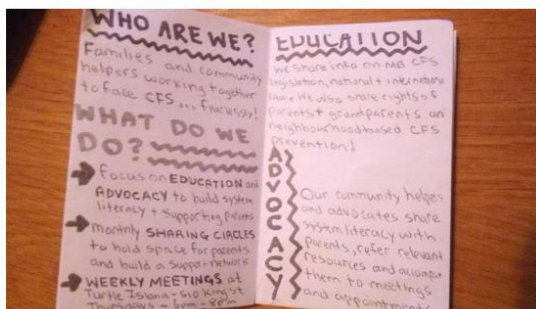 WHO ARE WE?
Families and community
helpers working together
to face CFS... fearlessly!
WHAT DO WE
DO?
focus on EDUCATION and
ADVOCACY to build system
literacy + supporting parents
monthly SHARING CIRCLES
to hold space for parents
and build a support network
WEEKLY MEETINGS at
Turtle Island - 510 King St
Thursdays - 6pm - 8pm
EDUCATION
We share info on MB CFS
legislation, national + international
We also share rights of
parents + grandparents
neighbourhood based CFS
prevention!
ADVOCACY
Our community helpers
and advocates share
system literacy with
parents, refer relevant
resources and accompany
them to meetings
and appointments